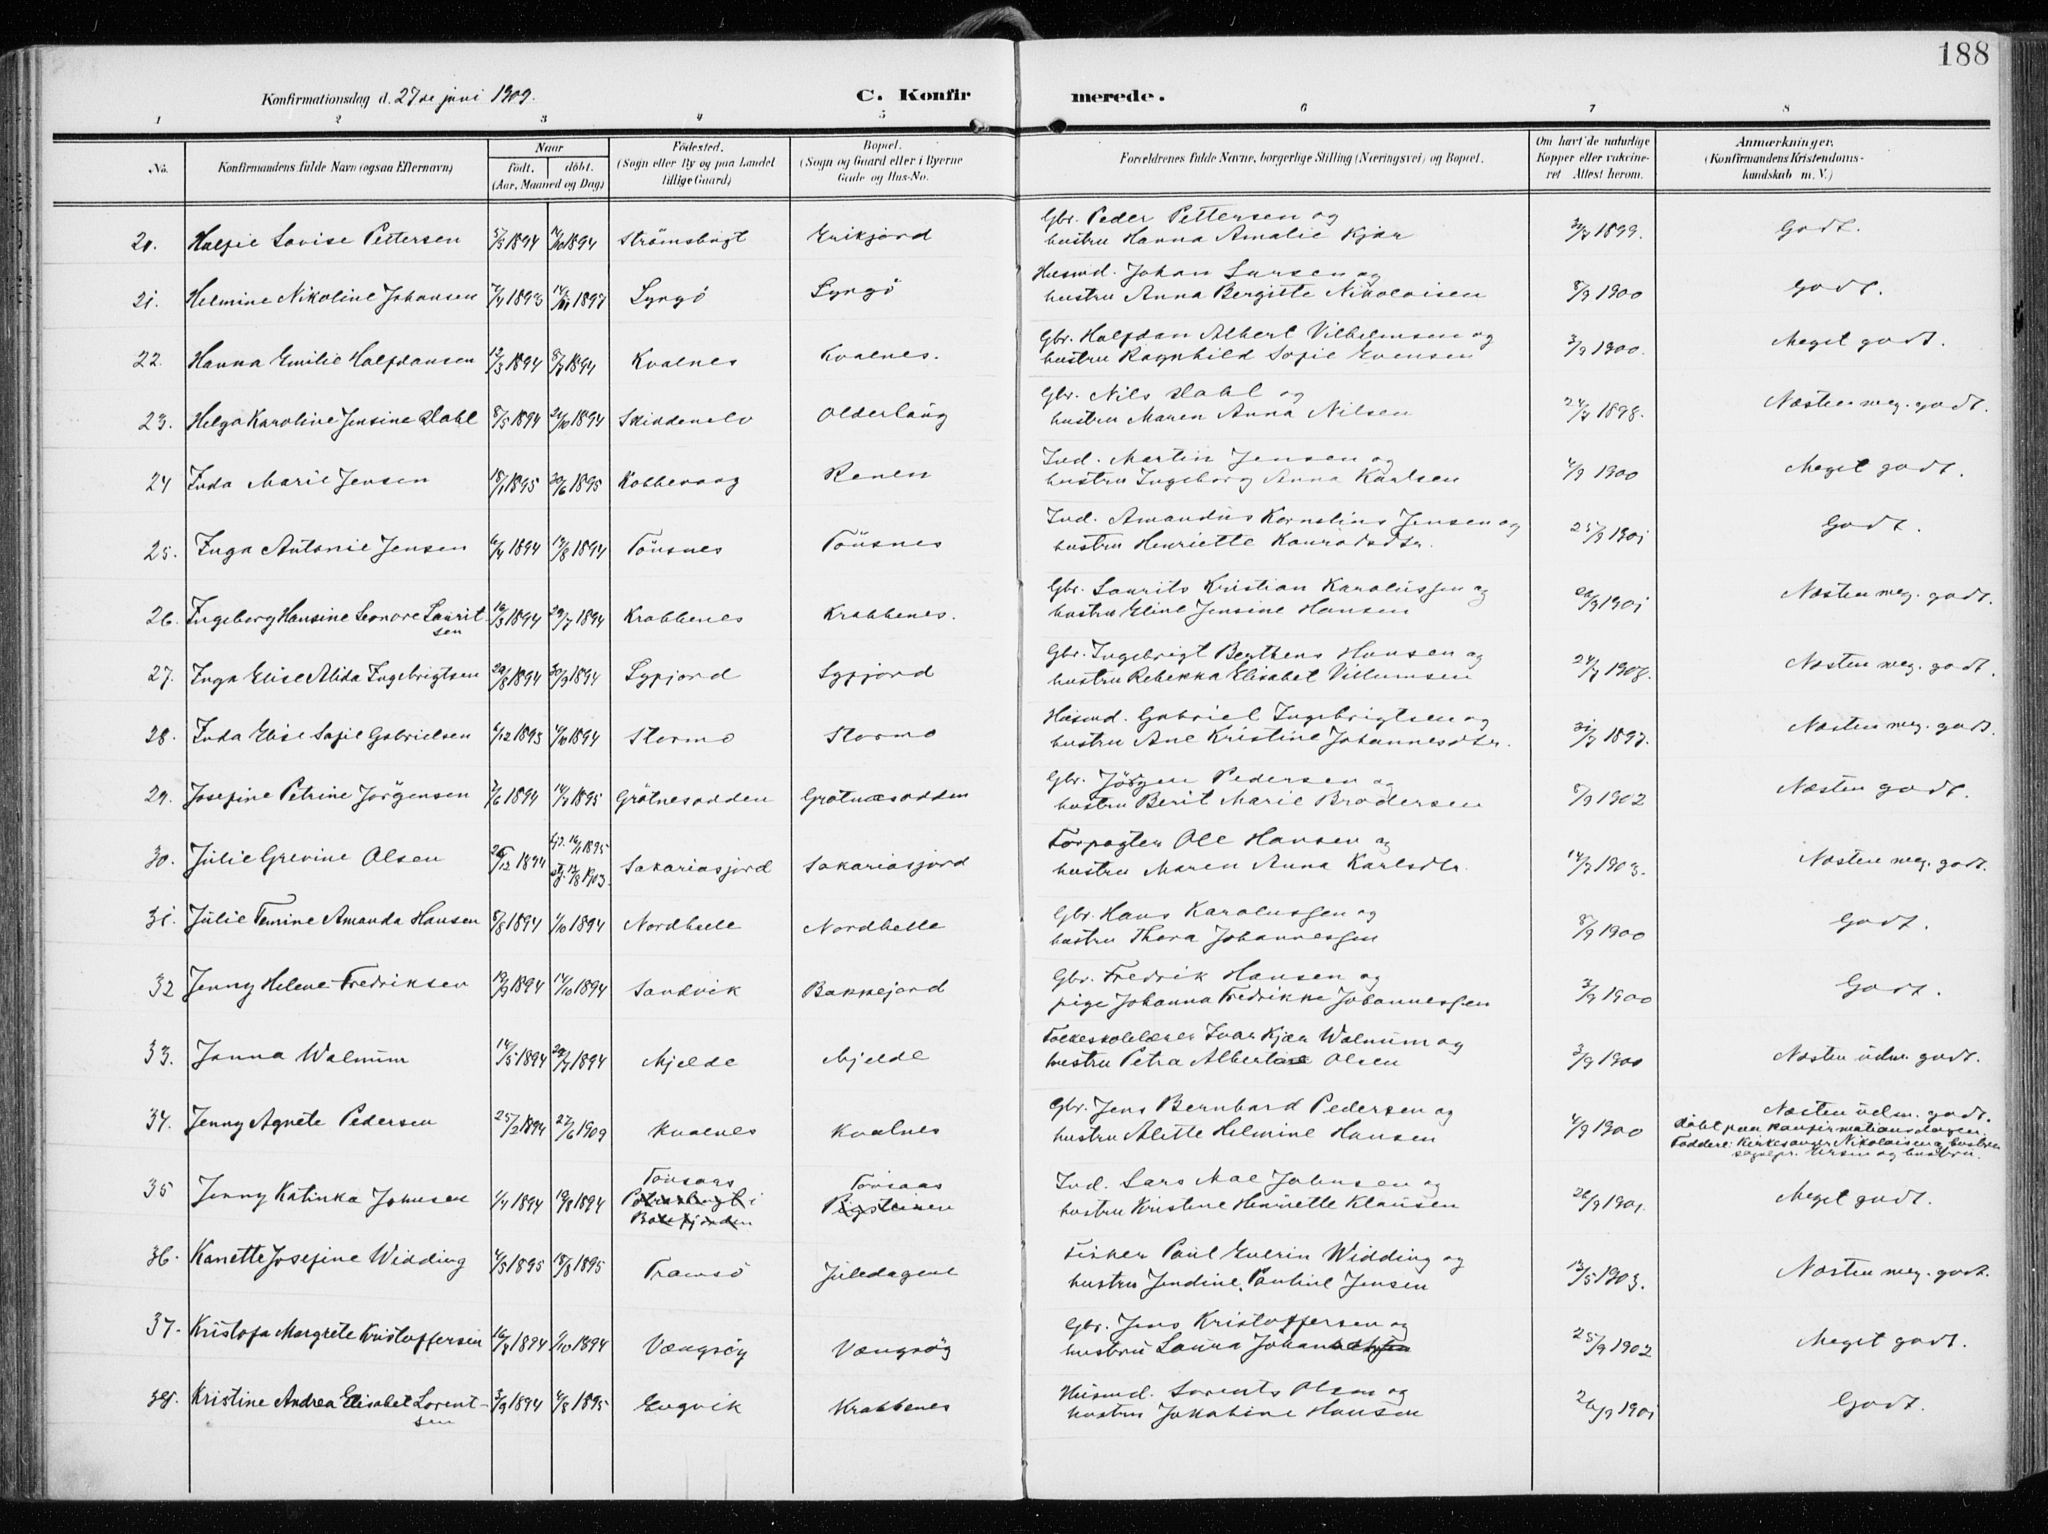 188
Konfirmationsdag d. 27de juni 1909. C. Konfirmerede.
1 2 3 4 5 6 7 8
No. Konfirmandens fulde Navn (ogsaa Efternavn) Naar født. døbt. (Aar, Maaned og Dag) Fødested. (Sogn eller By og paa Landet tillige Gaard) Bopæl. (Sogn og Gaard eller i Byerne Gade og Hus-No. Forældrenes fulde Navne, borgerlige Stilling (Næringsvei) og Bopæl. Om havt de naturlige Kopper eller vakcineret Attest herom. Anmærkninger. (Konfirmandens Kristendomskundskab m. V.)
20. Lovise Pettersen 1894 1894 Strømsbugt Erikfjord Gbr. Peder Pettersen og hustru Hanna Amalie Kjær 1899. Godt.
21. Helmine Nikoline Johansen 1893 Lyngö Lyngö Husmd. Johan Larsen og hustru Anna Bergitte Nikolaisen 8/9 1900 Godt.
22. Hanna Emilie Halfdansen 12/3 1894 8/7 1894 Kvalnes Kvalnes. Gbr. Halfdan Albert Vilhelmsen og hustru Ragnhild Sofie Evensen 3/9 1900. Meget godt.
23. Helga Karoline Jensine Dahl 8/5 1894 /10 1894 Skiddenelv Gbr. Nils Dahl og hustru Maren Anna Nilsen 24/7 1898. Næsten meg. godt.
24 Inda Marie Jensen 18/1 1895 /6 1895 Kobbevaag Renen Ind. Martin Jensen og hustru Ingeborg Anna Karlsen 4/9 1900 Meget godt.
25. Inga Antonie Jensen 1894 /8 1894 Tönsnes Tönsnes Ind. Amandus Kornelius Jensen og hustru Henriette Konradsdtr. 25/9 1901 Godt.
26. Ingeborg Hansine Leonore Lauritsen 16/3 1894 29/7 1894 Krabbenes Krabbenes. Gbr. Laurits Kristian Karolussen og hustru Eline Jensine Hansen /9 1901 Næsten meg. godt.
27. Inga Elise Alida Ingebrigtsen 29/8 1894 30/9 1894 Lyfjord Lyfjord Gbr. Ingebrigt Berthens Hansen og hustru Rebekka Elisabet Villumsen 24/7 1908. Næsten meg. godt.
28. Inda Elise Sofie Gabrielsen /12 1893 /10 1894 Stormo Stormo Husmd. Gabriel Ingebrigtsen og hustru Ane Kristine Johannesdtr. 1897. Næsten meg. godt.
29. Josefine Petrine Jörgensen /6 1894 1895 Grötnesodden Grötnæsodden Gbr. Jörgen Pedersen og hustru Berit Marie Brodersen 8/9 1902 Næsten godt.
30. Julie Grevine Olsen 26/12 1894 1895 1903. Sakariasfjord Sakariasfjord Forpagter Ole Hansen og hustru Maren Anna Karlsdtr. 14/9 1903. Næsten meg. godt.
31. Julie Temine Amanda Hansen 8/8 1894 /10 1894 Nordhelle Nordhelle Gbr. Hans Karolussen og hustru Thora Johannessen 8/9 1900 Godt.
32 Jenny Helene Fredriksen 19/9 1894 14/10 1894 Sandvik Bakkejord Gbr. Fredrik Hansen og pige Johanna Fredrikke Johannessen 3/9 1900 Godt.
33. Janna Walnum 14/5 1894 29/7 1894 Mjelde Mjelde Folkeskolelærer Ivar Kjær Walnum og hustru Petra Albertine Olsen 3/9 1900 Næsten udm. godt.
34. Jenny Agnete Pedersen 25/2 1894 27/6 1909 Kvalnes Kvalnes Gbr. Jens Bernhard Pedersen og hustru Alette Helmine Hansen 4/9 1900 Næsten udm. godt. Döbt paa konfirmationsdagen. Faddere: Kirkesanger Nikolaisen og hustru, sognepr. og hustru.
35 Jenny Katinka Johnsen 1/4 1894 19/8 1894 Tönsaas Tönsaas Ind. Lars Johnsen og hustru Kristine Henriette Klausen 26/9 1901. Meget godt.
36. Kanette Josefine Widding 4/5 1895 18/8 1895 Tromsö Juledagene Fisker Paul Everin Widding og hustru Jendine Pauline Jensen 13/5 1903. Næsten meg. godt.
37. Kristofa Margrete Kristoffersen 1894 /10 1894 Vængsöy Vængsöy Gbr. Jens Kristoffersen og hustru Laura 25/9 1902 Meget godt.
38. Kristine Andrea Elisabet Lorentsen 3/9 1894 4/8 1895 Engvik Krabbenes Husmd. Lorents Olsen og hustru Jakobine Hansen 26/9 1901 Godt.